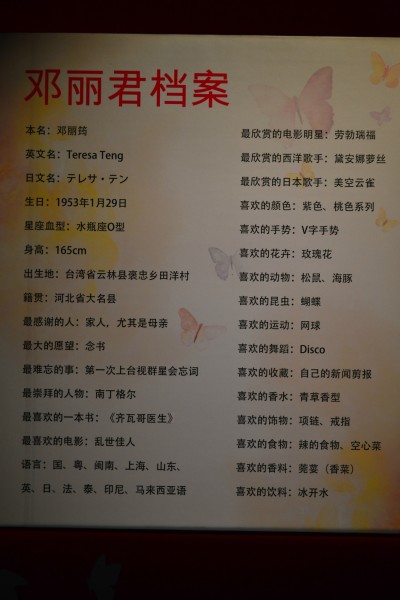 邓丽君档案
本名：邓丽筠
英文名：Teresa Teng
日文名：テレサ・テン
生日：1953年1月29日
星座血型：水瓶座O型
身高：165cm
出生地：台湾省云林县褒忠乡田洋村
籍贯：河北省大名县
最感谢的人：家人，尤其是母亲
最大的愿望：念书
最难忘的事：第一次上台视群星会忘词
最崇拜的人物：南丁格尔
最喜欢的一本书：《齐瓦哥医生》
最喜欢的电影：乱世佳人
语言：国、粤、闽南、上海、山东、
英、日、法、泰、印尼、马来西亚语
最欣赏的电影明星：劳勃瑞福
最欣赏的西洋歌手：黛安娜萝丝
最欣赏的日本歌手：美空云雀
喜欢的颜色：紫色、桃色系列
喜欢的手势：V字手势
喜欢的花卉：玫瑰花
喜欢的动物：松鼠、海豚
喜欢的昆虫：蝴蝶
喜欢的运动：网球
喜欢的舞蹈：Disco
喜欢的收藏：自己的新闻剪报
喜欢的香水：青草香型
喜欢的饰物：项链、戒指
喜欢的食物：辣的食物、空心菜
喜欢的香料：莞荽（香菜）
喜欢的饮料：冰开水